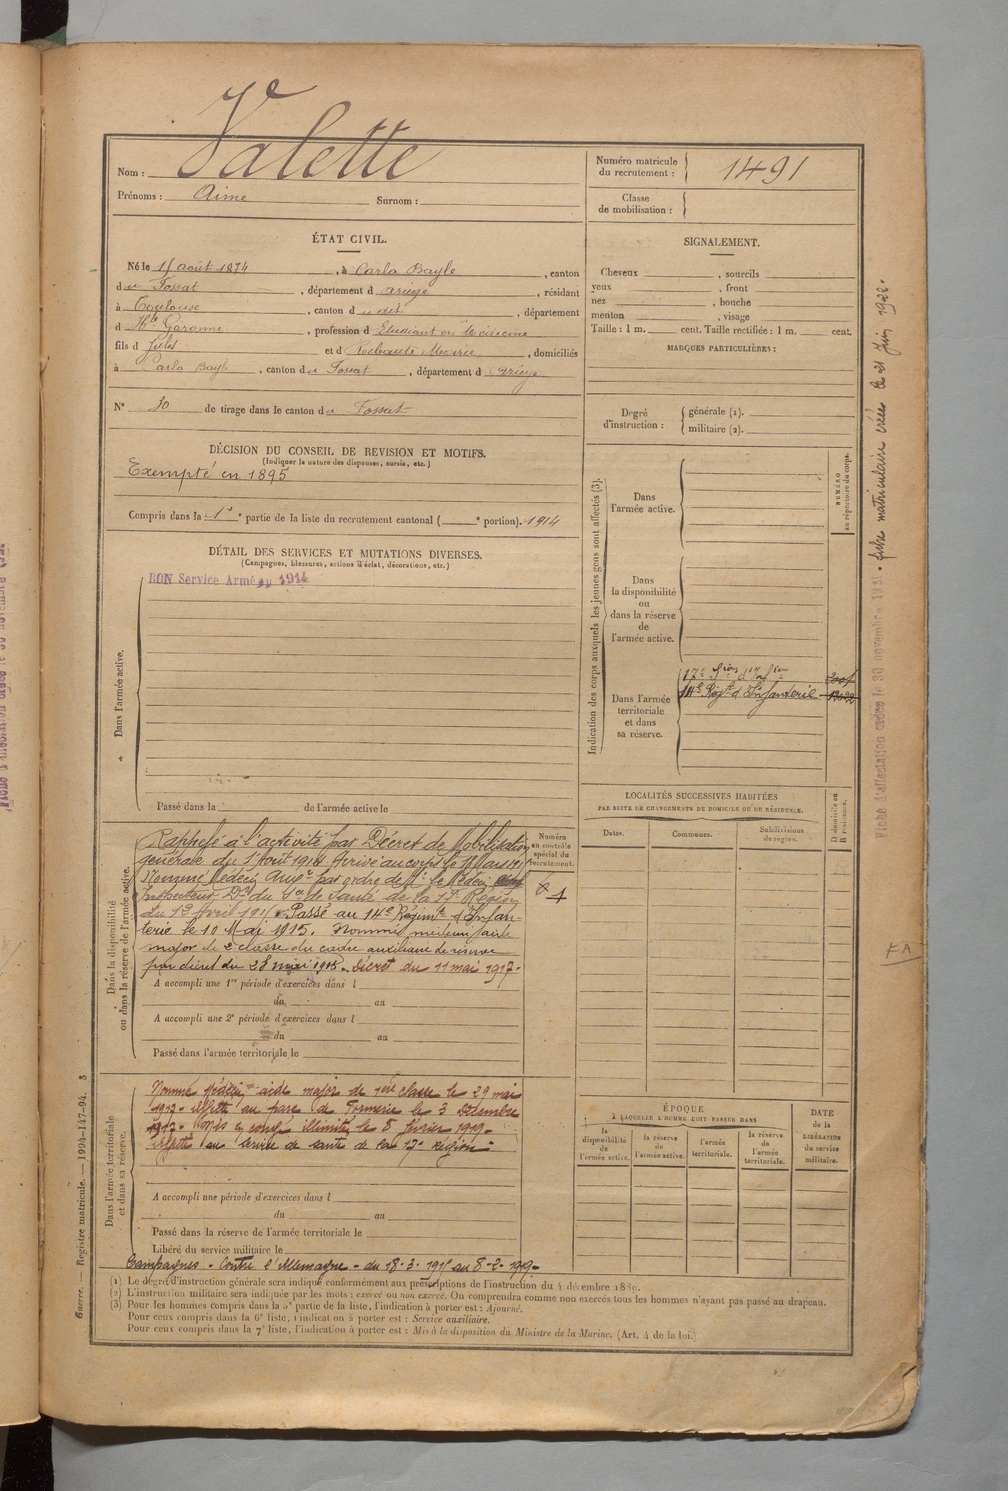 Valette
Nom :
Prénoms : Aimé Surnom :
Numéro matricule
du recrutement : 1491
Classe
de mobilisation :
ÉTAT CIVIL.
Né le 15 août 1874, à Carla Bayle, canton
du Fossat, département d Ariège, résidant
à Toulouse, canton d u dit, département
d Hte Garonne, profession d Etudiant en médecine
fils d Jules et d Maurie, domiciliés
à Carla Bayle, canton du Fossat, département d Ariège
N° 30 de tirage dans le canton du Fossat
DÉCISION DU CONSEIL DE REVISION ET MOTIFS.
(Indiquer la nature des dispenses, sursis, etc.)
Exempté en 1895
Compris dans la 1e partie de la liste du recrutement cantonal ( e portion). 1914
DÉTAIL DES SERVICES ET MUTATIONS DIVERSES.
(Campagnes, blessures, actions d'éclat, décorations, etc.)
BON Service Armé en 1914
Dans l'armée active.
Passé dans la de l'armée active le
Dans la disponibilité
ou dans la réserve de l'armée active.
Rappelé à l'activité par Décret de Mobilisation
générale du 1 Août 1914 Arrivé au corps le 18 Mars 1915
Nommé Médecin Auxre par ordre de Mr le Médecin
Inspecteur Dr du Sce de Santé de la 17e Région
du 12 Avril 1915. Passé au 14e Régimt d'Infan-
terie le 10 Mai 1915. Nommé médecin aide
major de 2e classe du cadre auxiliaire de réserve
par décret du 28 mai 1915. Décret du 11 mai 1917.
Numéro
au contrôle
spécial du
recrutement.
A accompli une 1re période d'exercices dans l
du au
A accompli une 2e période d'exercices dans l
du au
Passé dans l'armée territoriale le
Dans l'armée territoriale
et dans sa réserve.
Nommé Médecin aide major de 1ère classe le 29 mai
1917. Affecté au parc de Formerie le 3 Décembre
1917. Congé illimité le 8 février 1919.
Affecté au service de santé de la 17e Région.
A accompli une période d'exercices dans l
du au
Passé dans la réserve de l'armée territoriale le
Libéré du service militaire le
Campagnes. Contre l'Allemagne. du 18.3.1915 au 8.2.1919.
SIGNALEMENT.
Cheveux , sourcils
yeux , front
nez , bouche
menton , visage
Taille : 1 m. cent. Taille rectifiée : 1 m. cent.
MARQUES PARTICULIÈRES :
Degré
d'instruction :
générale (1).
militaire (2).
Indication des corps auxquels les jeunes gens sont affectés (3).
NUMÉRO
au répertoire du corps.
Dans
l'armée active.
Dans
la disponibilité
ou
dans la réserve
de
l'armée active.
Dans l'armée
territoriale
et dans
sa réserve.
17e Son d'Infiers
14e Régt d'Infanterie
LOCALITÉS SUCCESSIVES HABITÉES
PAR SUITE DE CHANGEMENTS DE DOMICILE OU DE RÉSIDENCE.
Dates.
Communes.
Subdivisions
de région.
D domicile ou
R résidence.
ÉPOQUE
À LAQUELLE L'HOMME DOIT PASSER DANS
la
disponibilité
de
l'armée active.
la réserve
de
l'armée active.
l'armée
territoriale.
la réserve
de l'armée
territoriale.
DATE
de la
LIBÉRATION
du service
militaire.
(1) Le degré d'instruction générale sera indiqué conformément aux prescriptions de l'instruction du 4 décembre 1889.
(2) L'instruction militaire sera indiquée par les mots : exercé ou non exercé. On comprendra comme non exercés tous les hommes n'ayant pas passé au drapeau.
(3) Pour les hommes compris dans la 5e partie de la liste, l'indication à porter est : Ajourné.
Pour ceux compris dans la 6e liste, l'indication à porter est : Service auxiliaire.
Pour ceux compris dans la 7e liste, l'indication à porter est : Mis à la disposition du Ministre de la Marine. (Art. 4 de la loi.)
Guerre. — Registre matricule. — 1994-147-94. 3
Fiche d'affectation créée le 30 novembre 1921. fiche matriculaire créée le 21 Juin 1922.
F A